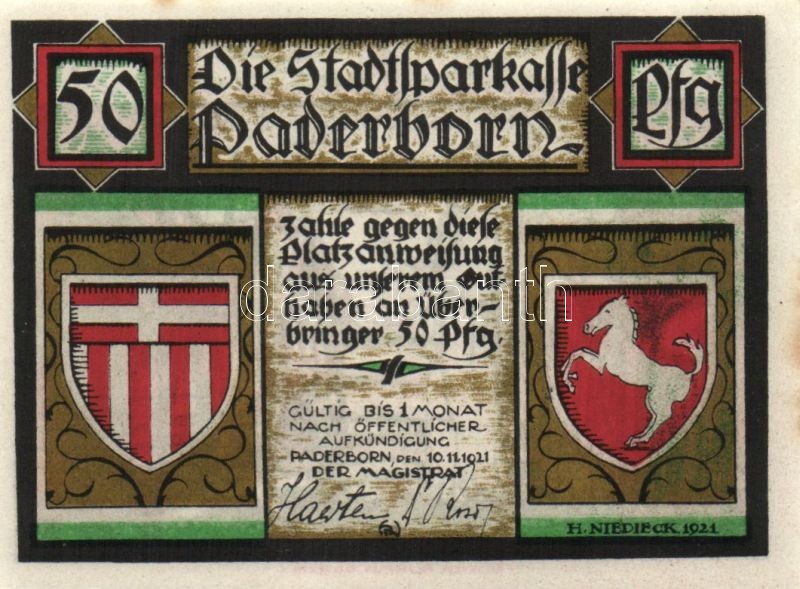 50
Die Stadtsparkasse
Paderborn
Pfg
Zahle gegen diese
Platzanweisung
aus unserem Gut
haben an Über-
bringer 50 Pfg.
darabanth
GÜLTIG BIS 1 MONAT
NACH ÖFFENTLICHER
AUFKÜNDIGUNG
PADERBORN, DEN 10.11.1921
DER MAGISTRAT
H. NIEDIECK 1921